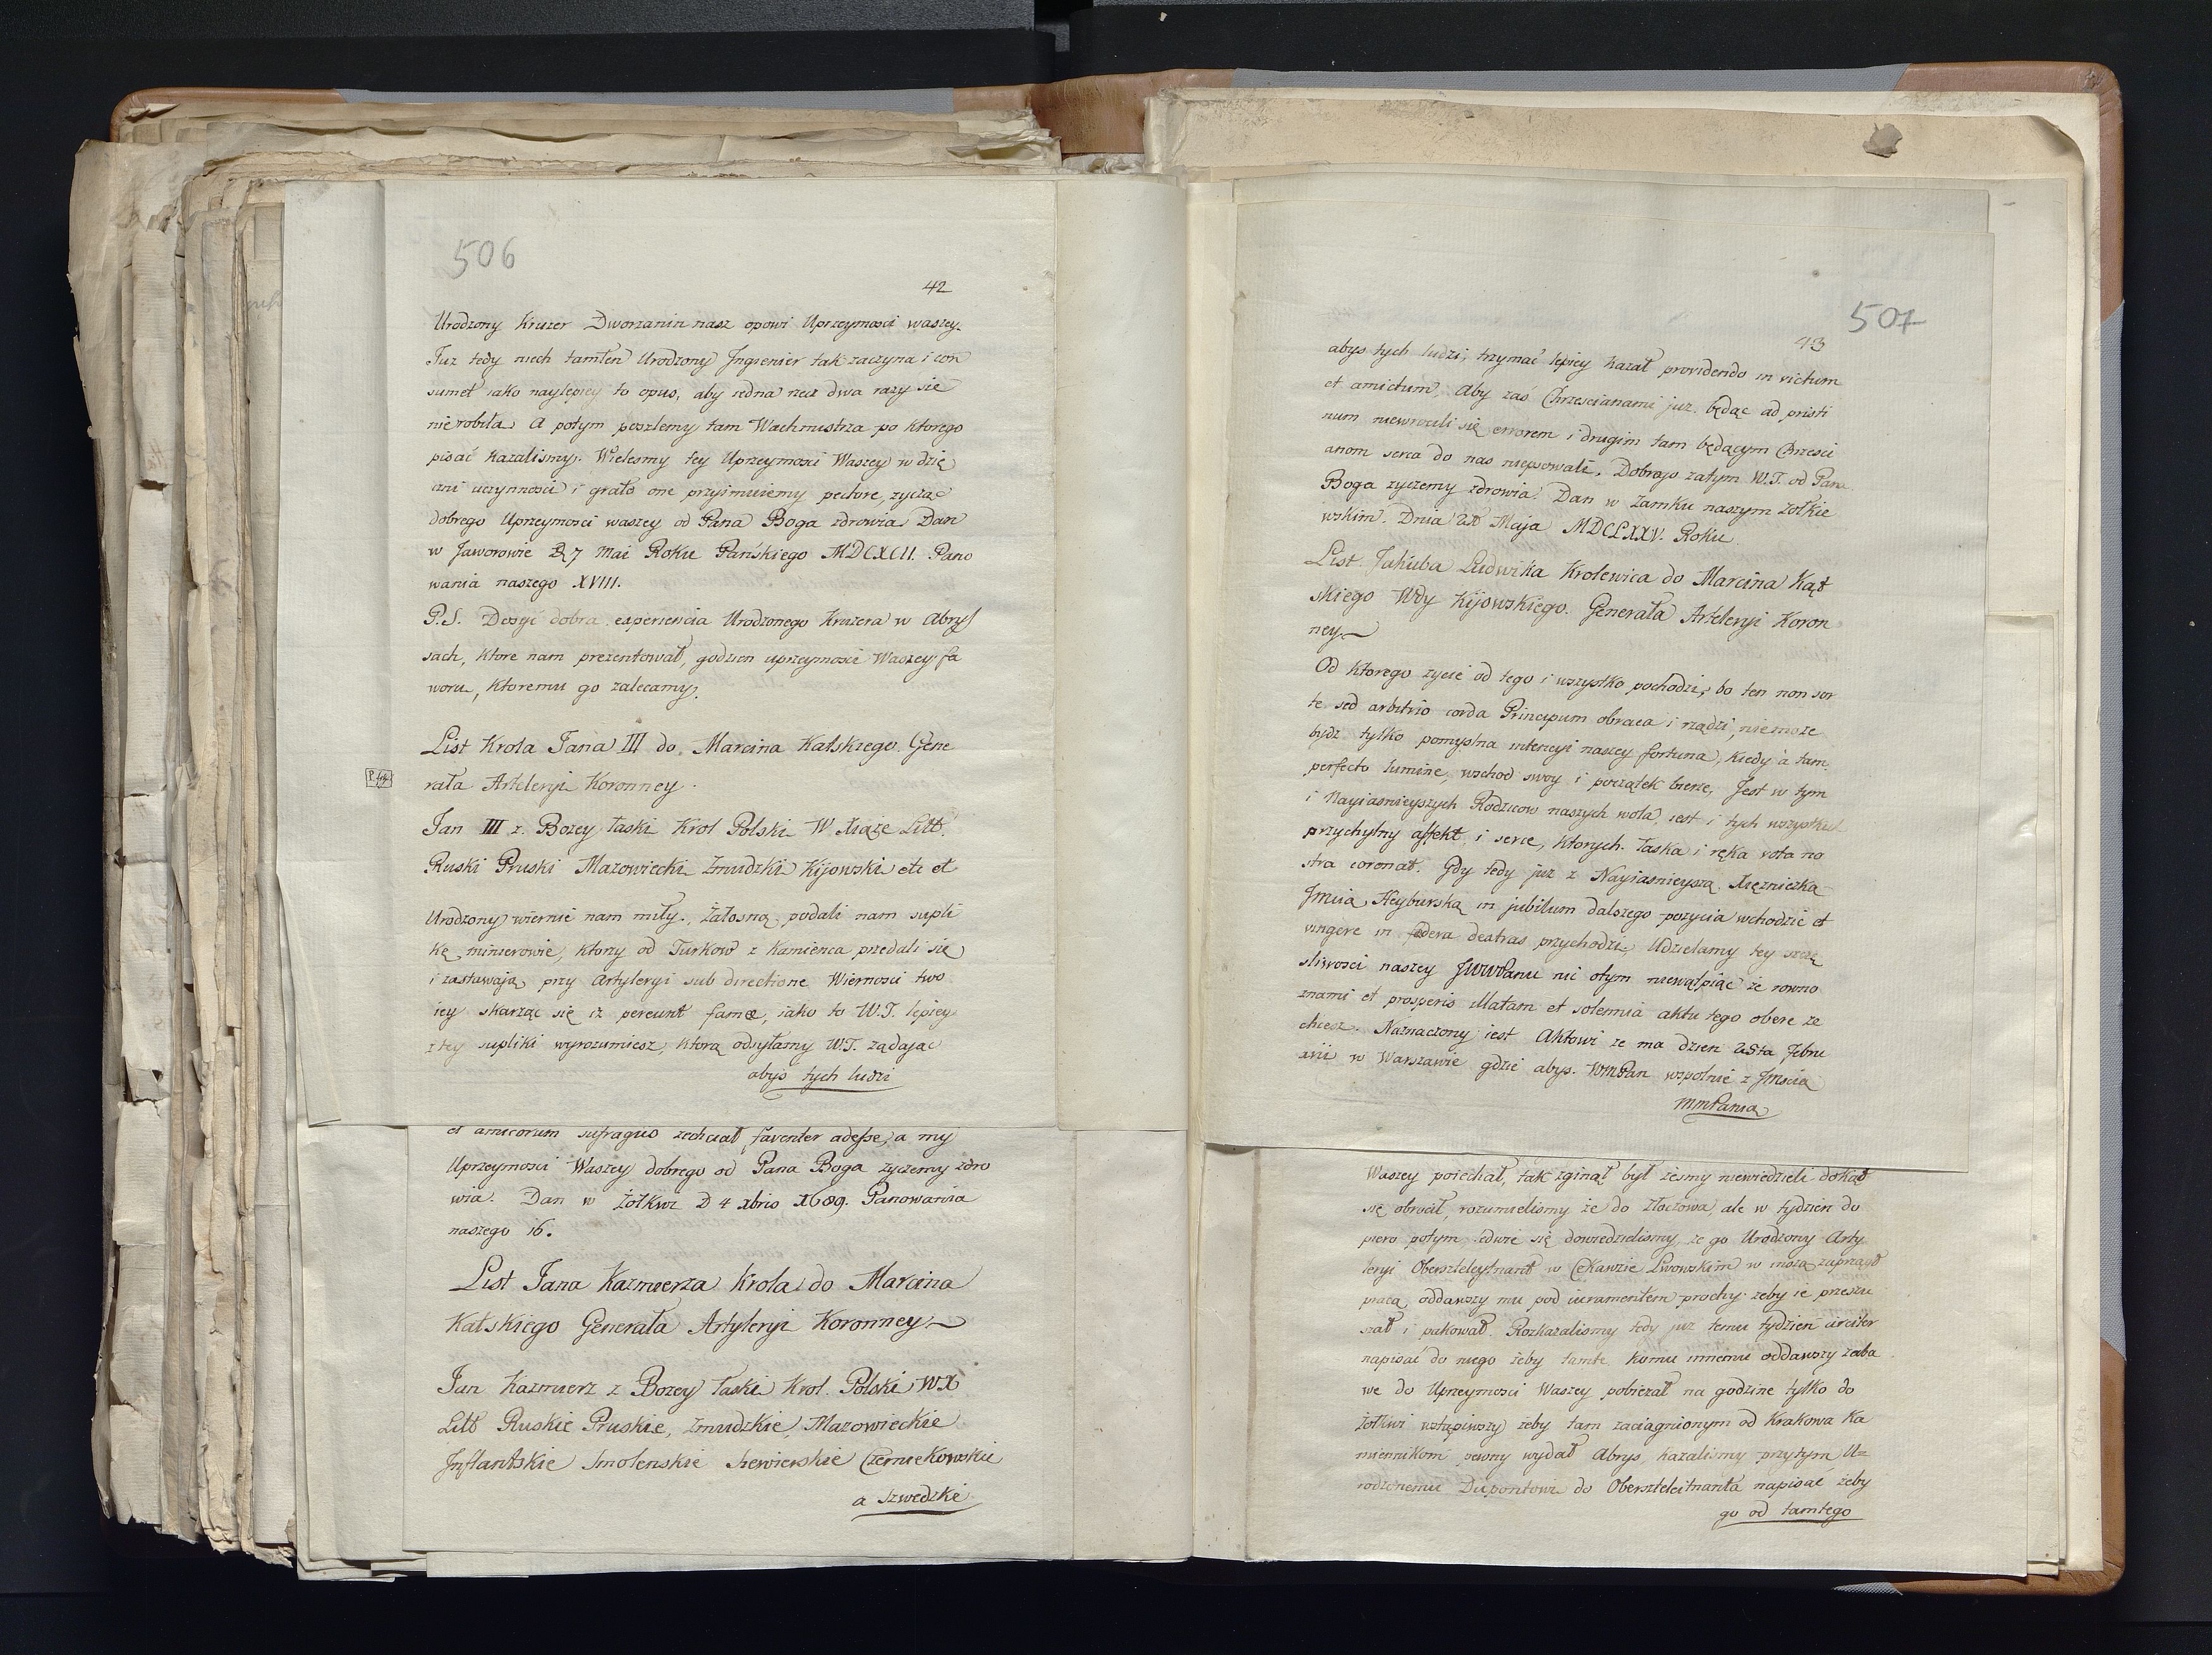 506
42
Urodzony Kruzer Dworzanin nasz opowi Uprzeymosci waszey.
Juz tedy niech tamten Urodzony Ingienier tak zaczyna i con
sumet iako naylepiey to opus, aby iedna rzecz dwa razy się
nie robiła. A potym poszlemy tam Wachmistrza po ktorego
pisać kazalismy. Wielesmy tey Uprzeymosci Waszey w dzię
czni uczynnosci i grato one przyimuiemy pectore, zycząc
dobrego Uprzeymosci waszey od Pana Boga zdrowia Dan
w Jaworowie 27 Mai Roku Pańskiego MDCXCII. Pano
wania naszego XVIII.
P.S. Dosyć dobra experiencia Urodzonego Kruzera w Abrys
sach, ktore nam prezentował, godzien uprzeymosci Waszey fa
woru, ktoremu go zalecamy.
List Krola Jana III do Marcina Kątskiego Gene
rała Artyleryi Koronney.
Jan III z Bozey łaski Krol Polski W. Xiąże Litt.
Ruski Pruski Mazowiecki Zmudzki Kijowski etc et
Urodzony wiernie nam miły. Załosną podali nam supli
kę minierowie, ktory od Turkow z Kamienca przedali się
i zastawają przy Artyleryi sub directione Wiernosci two
iey skarząc się iz pereunt fame, iako to W.T. lepiey
z tey supliki wyrozumiesz, ktorą odsyłamy W.T. ządając
abys tych ludzi
et amicorum sufragus zechciał faventer adesse, a my
Uprzeymosci Waszey dobrego od Pana Boga zyczemy zdro
wia. Dan w Zołkwi D 4 xbris 1689. Panowania
naszego 16.
List Jana Kazmierza Krola do Marcina
Kątskiego Generała Artyleryi Koronney
Jan Kazmierz z Bozey łaski Krol Polski WX
Litt Ruskie Pruskie, Zmudzkie, Mazowieckie
Inflantskie Smolenskie Siewierskie Czerniekowskie
a Szwedzki
507
43
abys tych ludzi, trzymać lepiey kazał providendo in victum
et amictum, Aby zaś Chrzescianami juz będąc ad pristi
num niewracali się errorem i drugim tam będącym Chrzesci
anom serca do nas niepsowali. Dobrego zatym W.T. od Pana
Boga zyczemy zdrowia. Dan w Zamku naszym Zołkie
wskim. Dnia Maja MDCLXXV. Roku.
List Jakuba Ludwika Krolewica do Marcina Kąt
skiego Wdy Kijowskiego. Generała Artyleryi Koron
ney
Od ktorego zycie od tego i wszystko pochodzi, bo ten non sor
te sed arbitrio corda Principum obraca i rządzi, niemoze
bydz tylko pomyslna intencyi naszey fortuna, kiedy à tam
perfecto lumine, wschod swoy i początek bierze, Jest w tym
i Nayiasnieyszych Rodzicow naszych wola, iest i tych wszystkich
przychylny affekt i serce, ktorych łaska i ręka vota no
stra coronat. Gdy tedy juz z Nayiasnieyszą Xięzniczką
Jmcią Neyburską in jubilum dalszego pozycia wchodzić et
iungere in fœdera dextras przychodzi, Udzielamy tey szczę
sliwosci naszey JWWPanu nic otym niewątpiąc ze rowno
znami et prosperis et solennia aktu tego obere ze
chcesz. Naznaczony iest Aktowi ze ma dzien Febru
arii w Warszawie gdzie abys. WmPan wspolnie z Jmscią
MmPanią
Waszey poiechał, tak zginął był zesmy niewiedzieli dokąd
się obrocił, rozumielismy że do Złoczowa, ale w tydzien do
piero potym ledwie się dowiedzielismy ze go Urodzony Arty
leryi Oberszteleytnant w Lwowskim w zaprząsł
pracą oddawszy mu pod iuramentem prochy zeby ie przesu
szał i pakował. Rozkazalismy tedy juz temu tydzien circiter
napisać do niego żeby tamte komu innemu oddawszy zaba
we do Uprzeymosci Waszey pobiezał na godzine tylko do
Zołkwi wstąpiwszy żeby tam zaciągnionym od Krakowa Ka
miennikom pewny wydał Abrys, kazalismy przytym U
rodzonemu Dupontowi do Oberszteleitnanta napisać żeby
go od tamtego